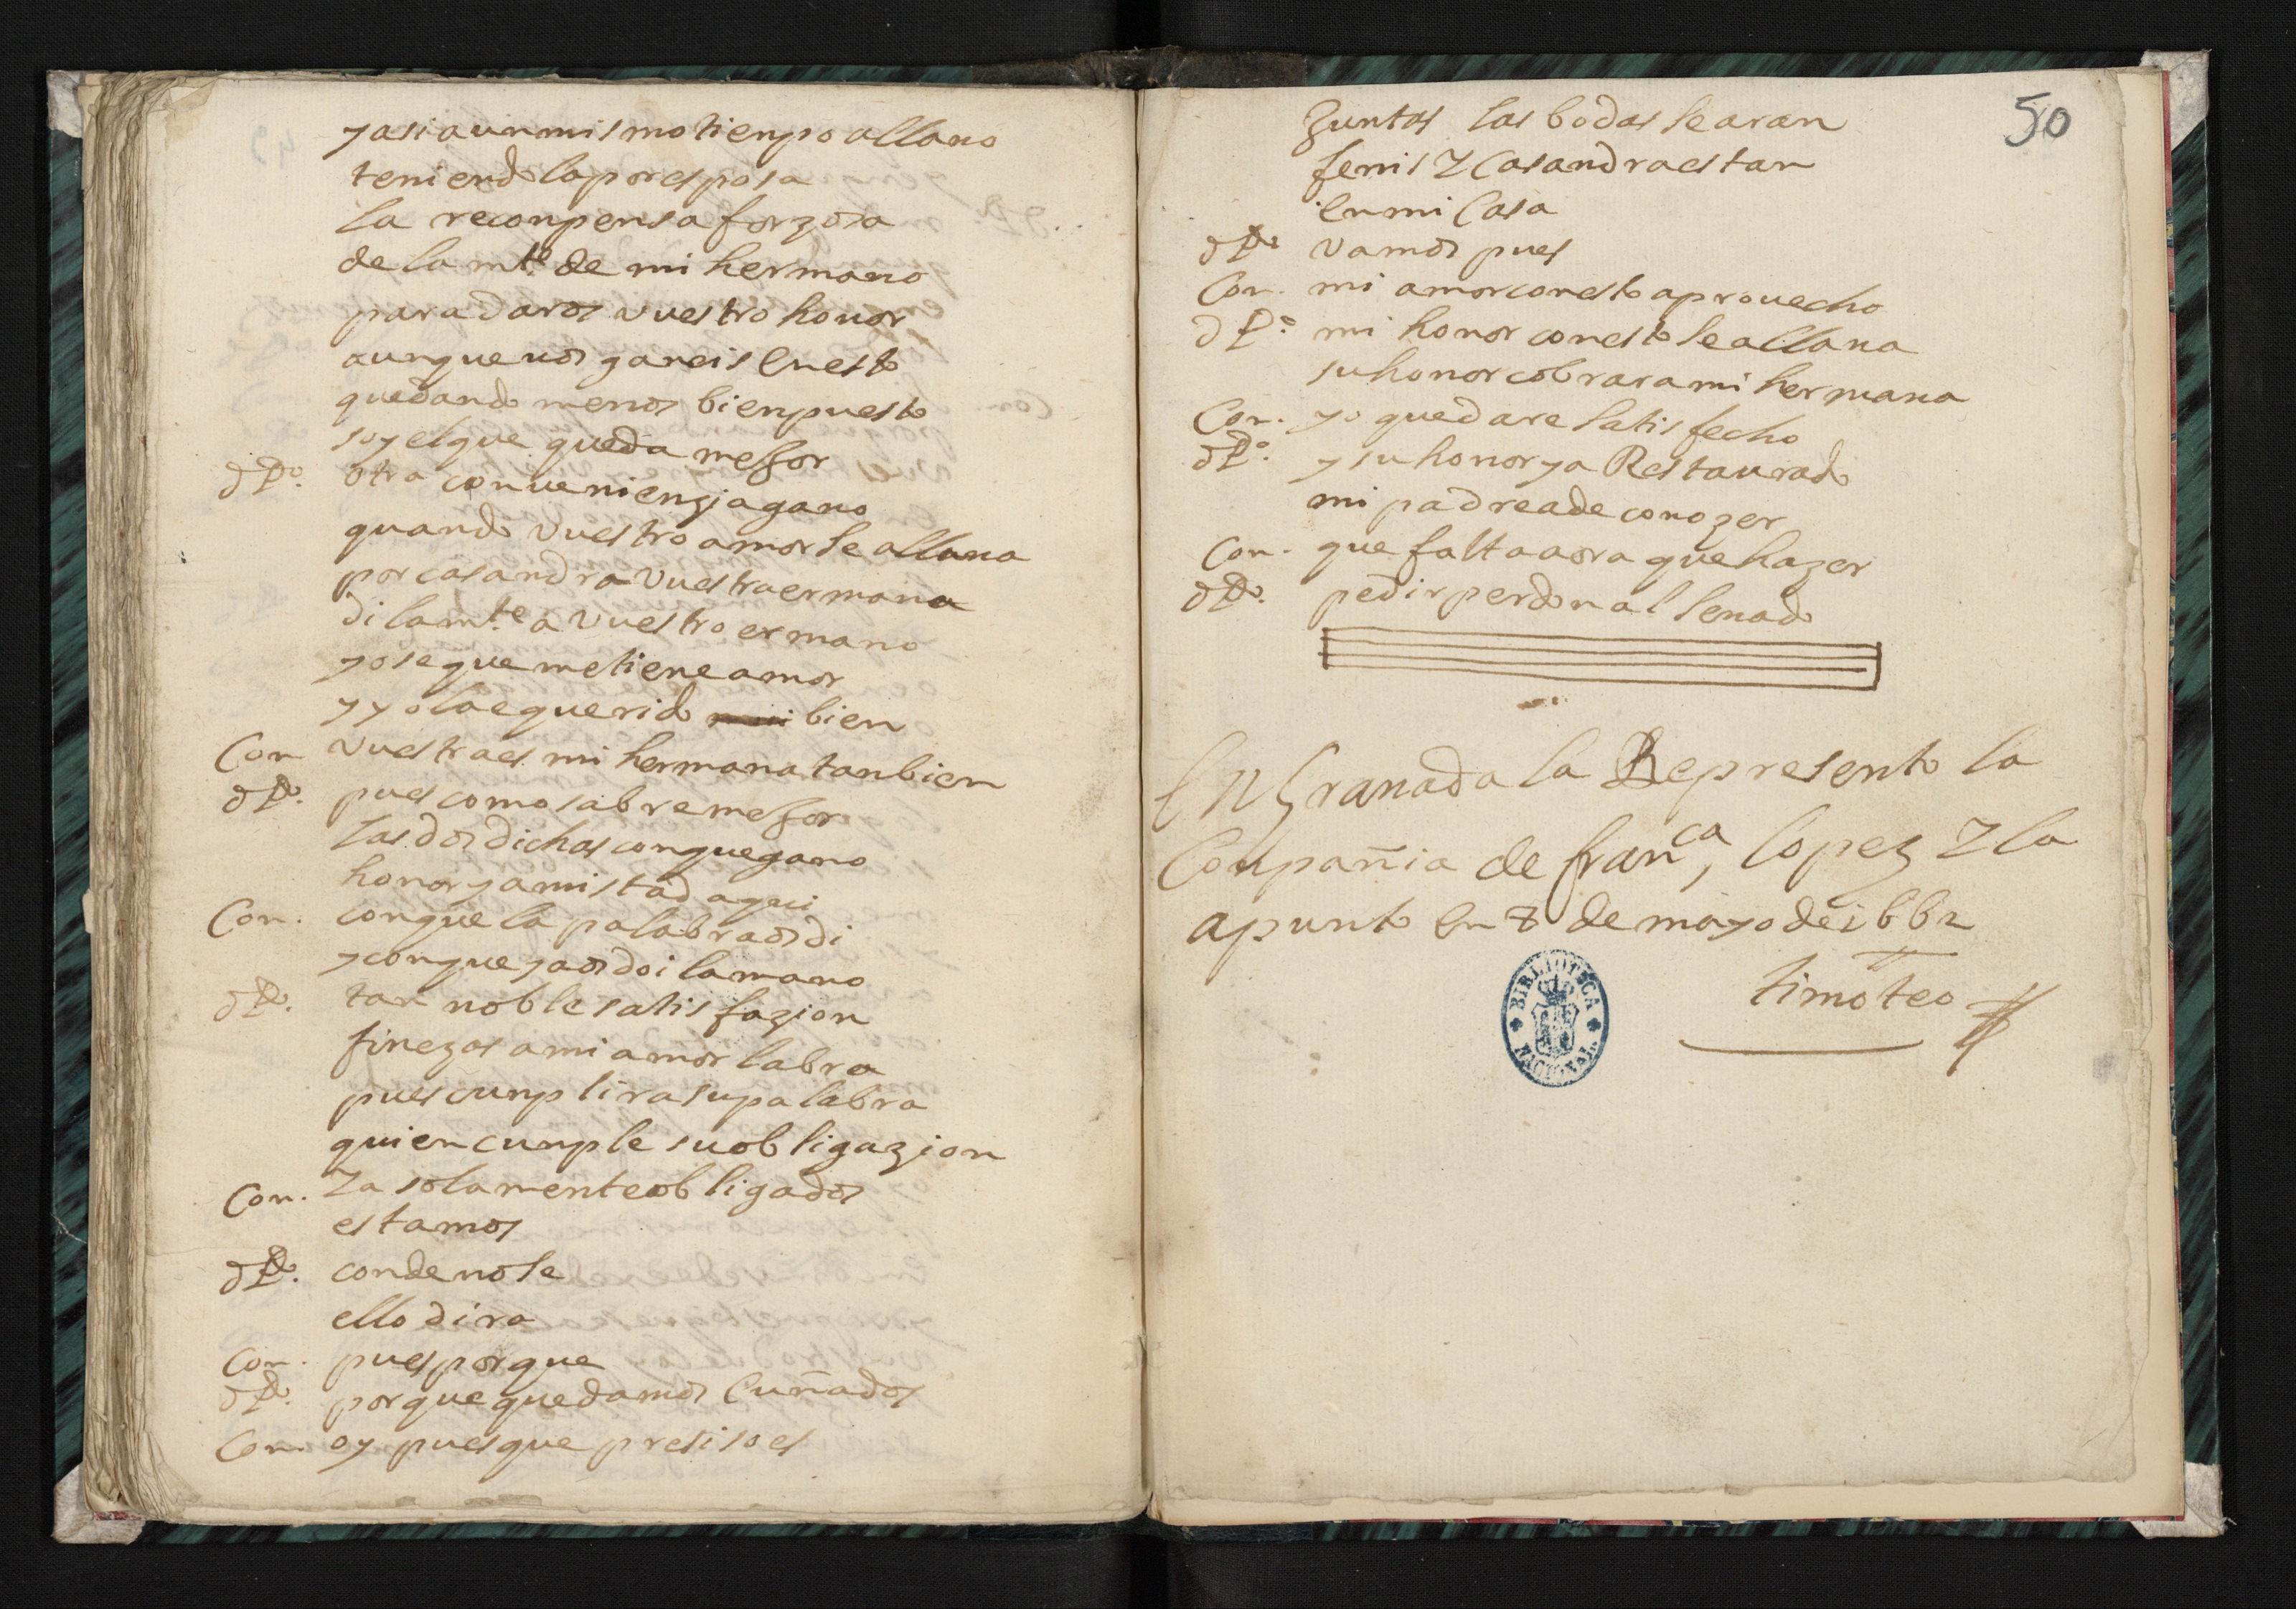 yasi a un mismo tienpo allano
teniendola por esposa
la reconpensa forzosa
de la mte de mi hermano
para daros vuestro honor
aunque uos ganeis en esto
quedando menos bien puesto
soy el que queda mejor
dPo. otra conuenienzia gano
quando vuestro amor se allana
por casandra vuestra ermana
di la mte a vuestro ermano
yo se que me tiene amor
y yo la e querido bien
Con vuestra es mi hermana tanbien
dPo. pues como sabre mejor
las dos dichas con que gano
honor y amistad aqui
Con. con que la palabra os di
y con que ya os doi la mano
dPo. tan noble satisfazion
finezas a mi amor labra
pues cunplira su palabra
quien cunple su obligazion
Con. Ya solamente obligados
estamos
dPo. conde no se
ello dira
Con. pues por que
dPo. porque quedamos Cuñados
Con. oy pues que presiso es
50
Juntas las bodas se aran
fenis Y Casandra estan
en mi Casa
dPo vamos pues
Con. mi amor con esto aprouecho
dPo. mi honor con esto se allana
su honor cobrara mi hermana
Con. yo quedare satisfecho
dPo. y su honor ya Restaurado
mi padre a de conozer
Con. que falta aora que hazer
dPo. pedir perdon al senado
En Granada la Represento la
Conpañia de franca, lopez Y la
apunto en 8 de mayo de 1662
timoteo
BIBLIOTECA NACIONAL